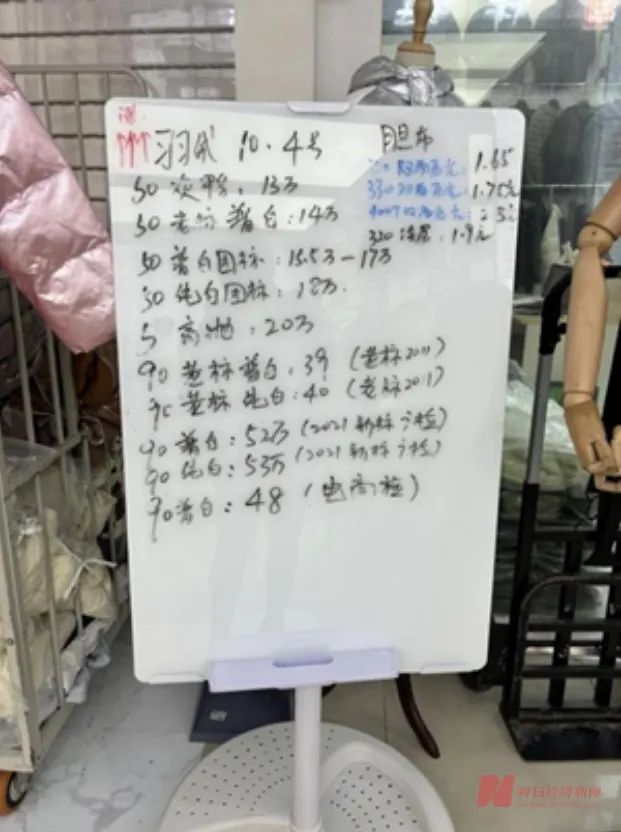 涨
↑↑↑ 羽绒 10.4号
50 灰鸭: 13万
50 普白: 14万
50 普白国标: 15.5万-17万
50 纯白国标: 18万
5 高灿: 20万
90 老标 普白: 39 (老标2011)
90 老标 纯白: 40 (老标2011)
90 普白: 52万 (2021新标 广检)
90 纯白: 53万 (2021新标 广检)
90 普白: 48 (电商检)
胆布
1.65
330 1.75元
400T 2.5元
320 涂层: 1.9元
每日经济新闻